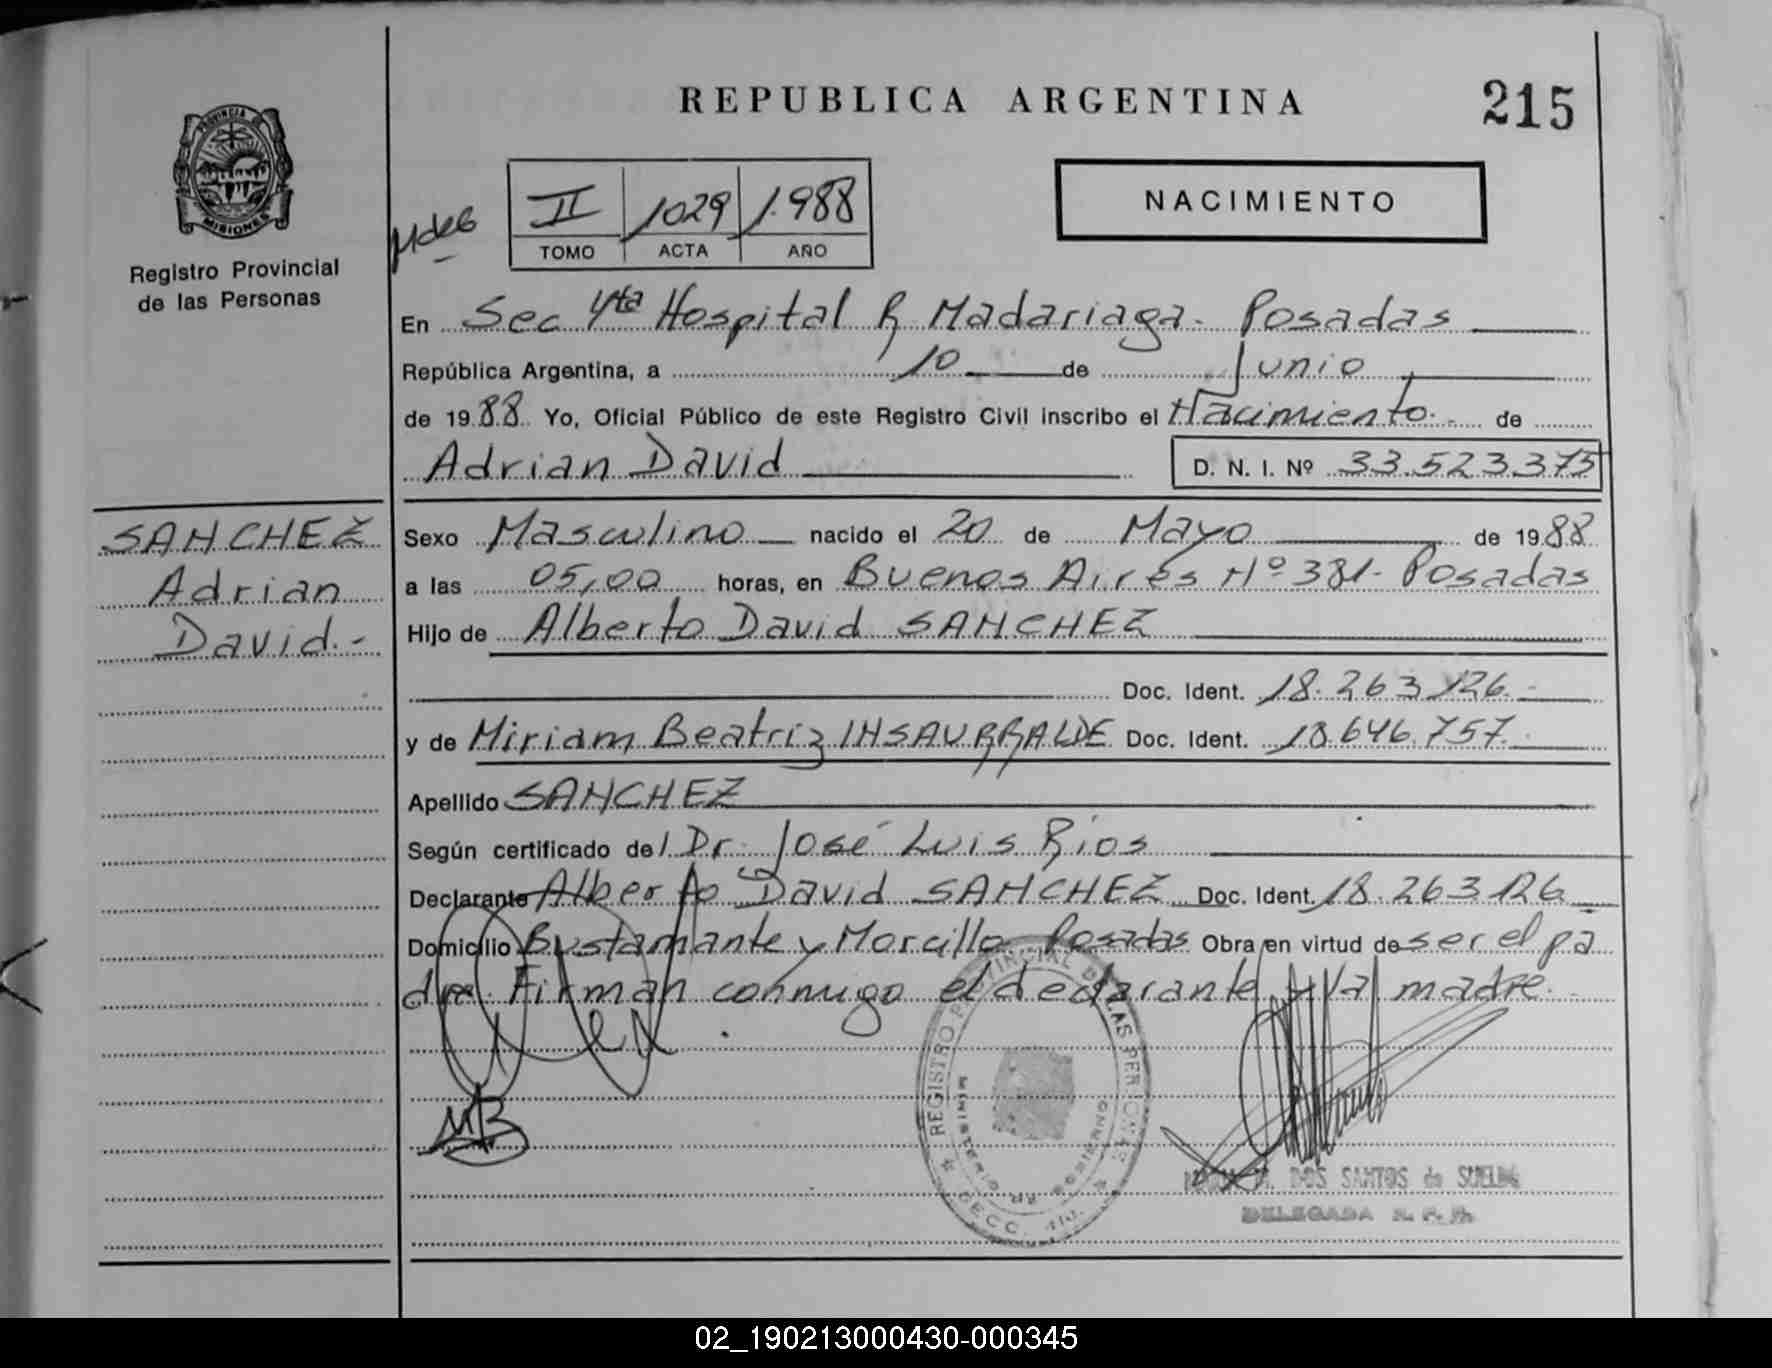 REPUBLICA ARGENTINA
215
PROVINCIA DE
MISIONES
Registro Provincial
de las Personas
II 1029 1.988
TOMO ACTA AÑO
NACIMIENTO
En Sec 4ta Hospital R Madariaga - Posadas
República Argentina, a 10 de Junio
de 1988 Yo, Oficial Público de este Registro Civil inscribo el Nacimiento de
Adrian David D. N. I. Nº 33.523.375
SANCHEZ
Adrian
David.-
Sexo Masculino nacido el 20 de Mayo de 1988
a las 05,00 horas, en Buenos Aires Nº 381- Posadas
Hijo de Alberto David SANCHEZ
Doc. Ident. 18.263.126.-
y de Miriam Beatriz INSAURRALDE Doc. Ident. 18.646.757.-
Apellido SANCHEZ
Según certificado del Dr. José Luis Rios
Declarante Alberto David SANCHEZ Doc. Ident. 18.263.126
Domicilio Bustamante y Morcillo Posadas Obra en virtud de ser el pa
dre. Firman conmigo el declarante y la madre.-
REGISTRO PROVINCIAL DE LAS PERSONAS
MINISTERIO DE GOBIERNO
SECC. 4ta.
MB
DOS SANTOS de SUELDO
DELEGADA R. P. P.
02_190213000430-000345